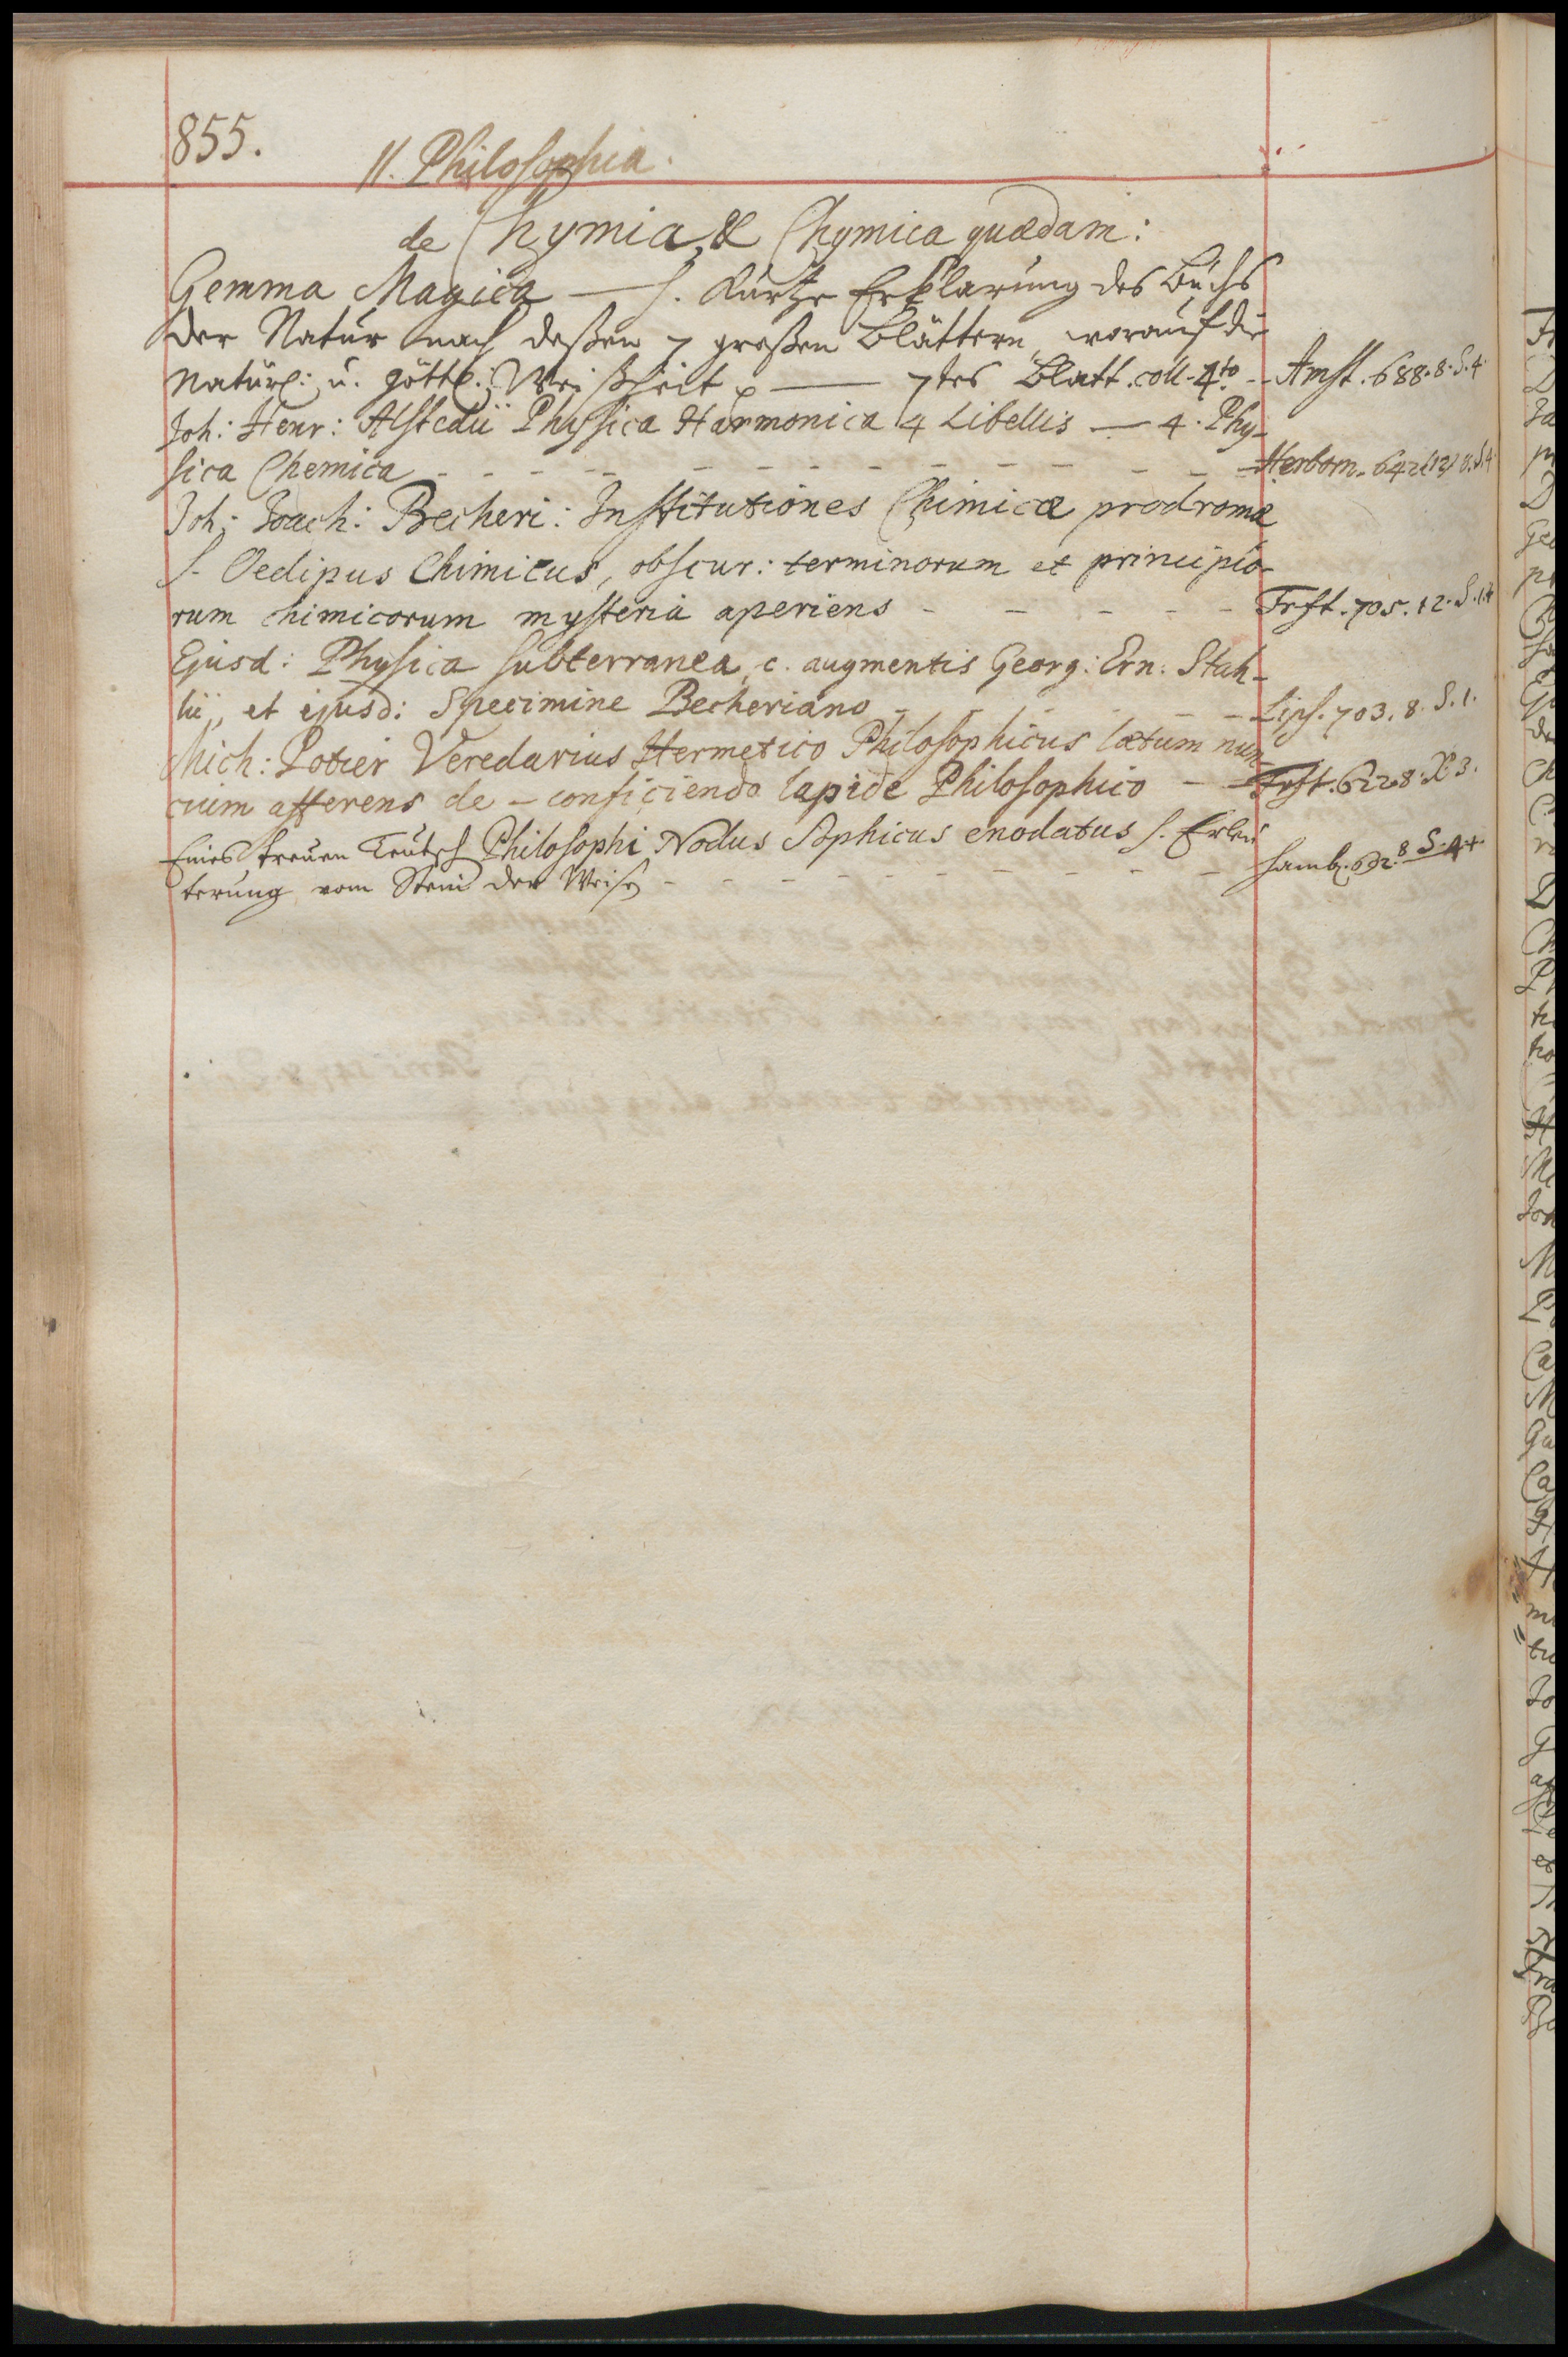 855.
11. Philosophia.
de Chymia, & Chymica quædam:
Gemma Magica — s. Kurtze Erklarung des Buchs
der Natur nach deßen 7 großen Blättern, worauf die
natürl: u. göttl. Weißheit — 7tes Blatt. coll. 4to - Amst. 688. 8. S. 4
Joh: Henr: Alstedii Physica Harmonica 4 Libellis — 4. Phy-
sica Chemica - - - - - - - - - - - - Herborn. 642 (12) 8. S. 4
Joh: Joach: Becheri: Institutiones Chimicæ prodromæ
s. Oedipus Chimicus, obscur: terminorum et principio-
rum chimicorum mysteria aperiens - - - - - Frft. 705. 12. S. 14
Ejusd: Physica subterranea, c. augmentis Georg: Ern: Stah-
lii, et ejusd: Specimine Becheriano - - - - - Lips. 703. 8. S. 1.
Mich: Potier Veredarius Hermetico Philosophicus lætum nun-
cium afferens de - conficiendo lapide Philosophico - - Frft. 622 8. X 3.
Eines treuen Teutsch Philosophi Nodus Sophicus enodatus s. Erleu
terung vom Stein der Weisen - - - - - - - - - - Hamb. 692. 8 S. 4+